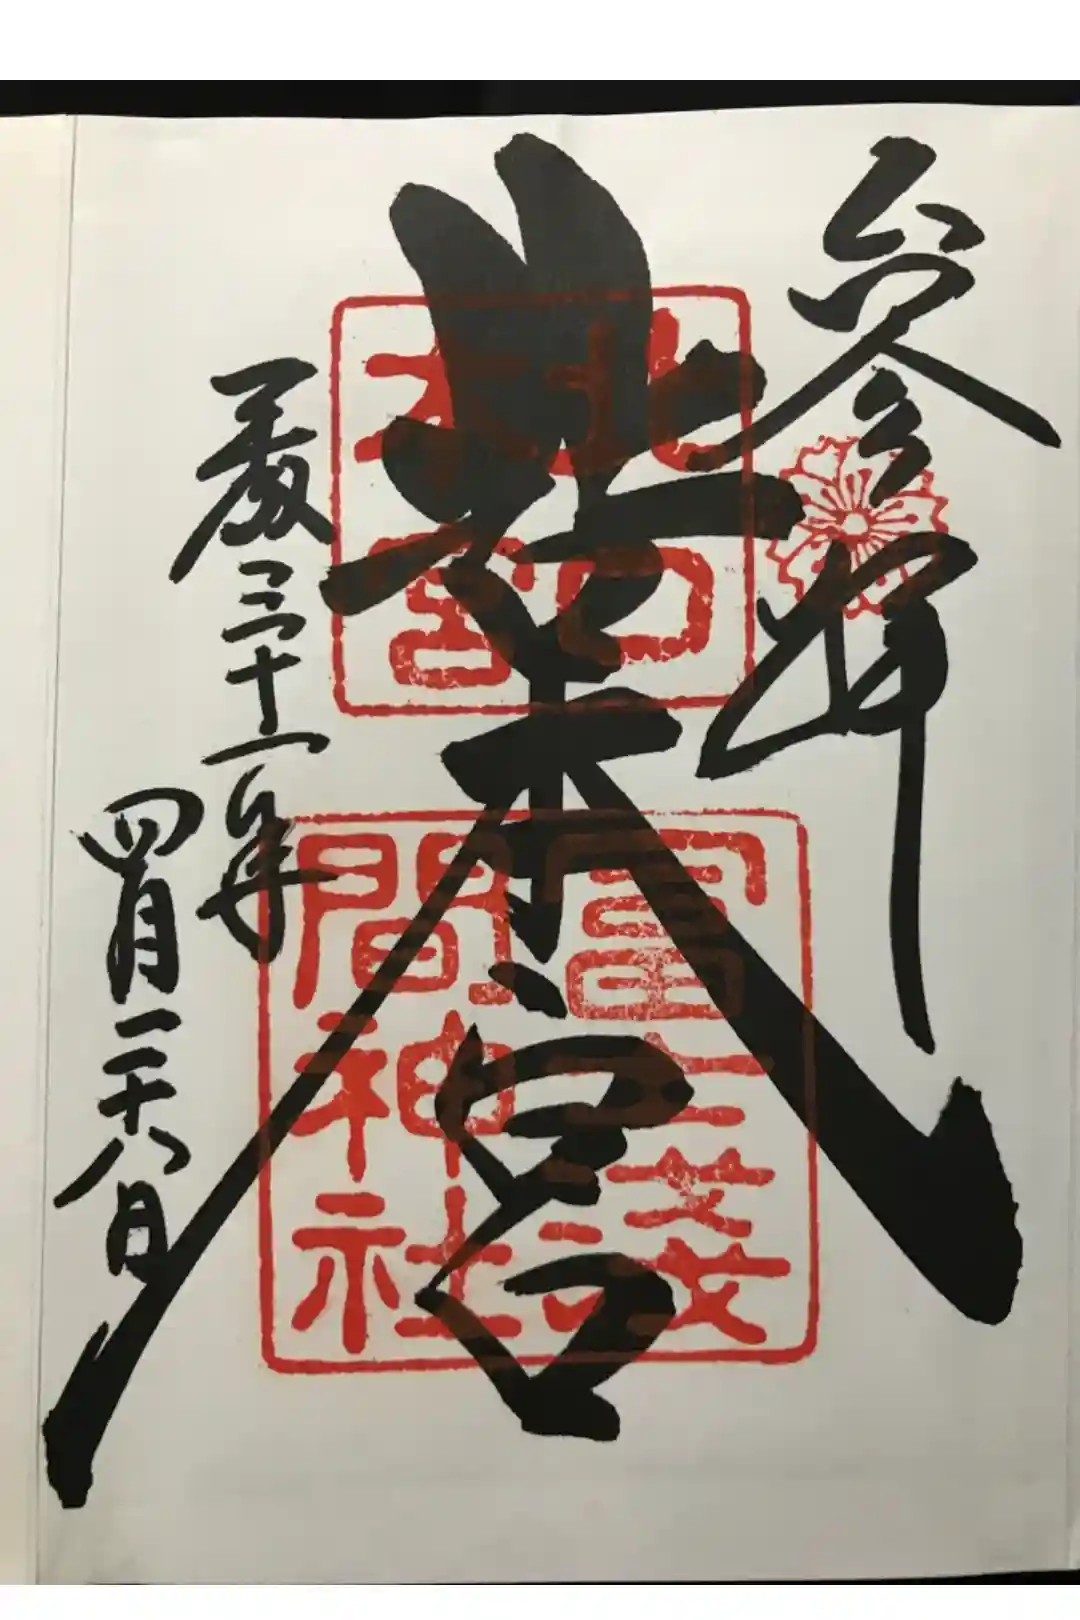 參拝
北口本宮
平成三十一年
四月二十八日
北口
本宮
冨士淺
間神社